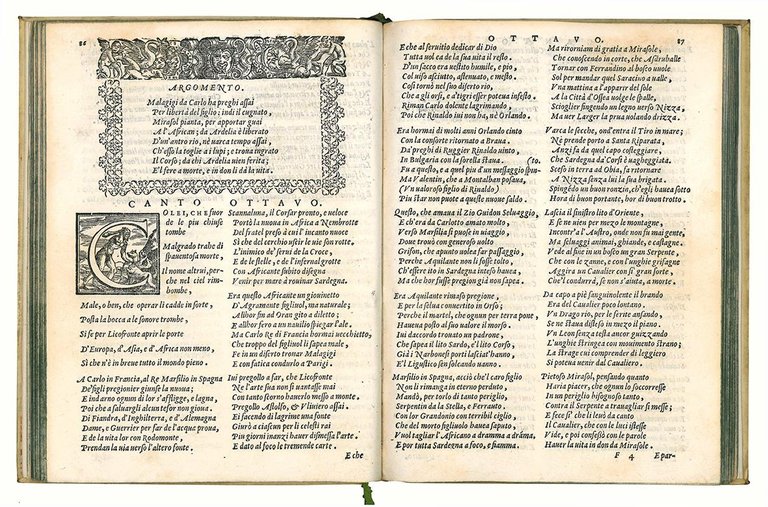 86
ARGOMENTO.
Malagigi da Carlo ha preghi assai
Per libertà del figlio; indi il cugnato,
Mirasol pianta, per apportar guai
A l'African; da Ardelia è liberato
D'un antro rio, nè warca tempo assai;
Ch'esso la toglie a i lupi; e trona ingrato
Il Corso; da chi Ardelia vien ferita;
E'l fere a morte, e in don li dà la vita.
CANTO OTTAVO.
COLEI, che fuor
de le piu chiuse
tombe
Malgrado trahe di
spauentosa morte,
Il nome altrui, perche
nel ciel rimbombe,
Male, o ben, che operar li cadde in sorte,
Posta la bocca a le sonore trombe,
Si fe per Licofronte aprir le porte
D'Europa, d'Asia, e d'Africa non meno,
Sì che n'è in breue tutto il mondo pieno.
A Carlo in Francia, al Re Marsilio in Spagna
De' figli pregionier giunse la nuoua;
E indarno ognun di lor s'affligge, e lagna,
Poi che a saluargli alcun tesor non gioua.
Di Fiandra, d'Inghilterra, e d'Alemagna
Dame, e Guerrier per far de l'acque proua,
E de la vita lor con Rodomonte,
Prendan la via uerso l'altero fonte.
Stannalima, il Corsar pronto, e ueloce
Portò la nuoua in Africa a Nembrotte
Del fratel preso à cui l'incanto nuoce
Si che del cerchio uscir le vie son rotte.
L'inimico de' serui de la Croce,
E de le stelle, e de l'infernal grotte
Con Africante subito disegna
Venir per mare à rouinar Sardegna.
Era questo Africante un giouinetto
D'Agramante figliuol, ma naturale;
Allhor fin ad Oran gito a diletto;
E allhor fero a un nauilio spiegar l'ale.
Ma Carlo Re di Francia hormai uecchietto,
Che troppo del figliuol li sapea male,
Fe in un diserto tronar Malagigi
E con fatica condurlo a Parigi.
Iui pregollo a far, che Licofronte
Ne l'arte sua non si uantasse mai
Con tanto scorno hauerlo messo a monte.
Pregollo Astolfo, & Vliuiero assai
Ei facendo di lagrime una fonte
Giurò a ciascun per li celesti rai
Piu giorni inanzi hauer dismessa l'arte.
E dato al foco le tremende carte.
E che
OTTAVO.
87
E che al seruitio dedicar di Dio
Tutta uol ea de la sua uita il resto.
D'un sacco era uestito humile, e pio,
Col uiso asciutto, astenuato, e mesto.
Così tornò nel suo diserto rio,
Che a gli orsi, e a tigri esser poteua infesto.
Riman Carlo dolente lagrimando,
Poi che Rinaldo iui non ha, nè Orlando.
Era hormai di molti anni Orlando cinto
Con la consorte ritornato a Braua.
Da' preghi di Ruggier Rinaldo uinto,
In Bulgaria con la sorella staua. (to.
Fu a questo, e a quel piu d'un messaggio spin-
Ma Valentin, che a Montalban posaua,
(Vn ualoroso figlio di Rinaldo)
Piu star non puote a queste nuoue saldo.
Questo, che amaua il Zio Guidon Seluaggio,
E ch'era da Carlotto amato molto,
Verso Marsilia si puose in uiaggio,
Doue trouò con generoso uolto
Grifon, che apunto uolea far passaggio,
Perche Aquilante non li fosse tolto;
Ch'essere ito in Sardegna inteso hauea
Ma che hor fusse pregion già non sapea.
Era Aquilante rimaso pregione,
E per la selua conuertito in Orso;
Perche il martel, che ognun per terra pone,
Haueua posto al suo ualore il morso.
Iui daccordo trouato un padrone,
Che sapea il lito Sardo, e'l lito Corso,
Già i Narbonesi porti lasciat'hanno,
E'l Ligustico solcando uanno.
Marsilio in Spagna, acciò che'l caro figlio
Non li rimanga in eterno perduto
Mandò, per torlo di tanto periglio,
Serpentin da la Stella, e Ferrauto,
Con lor Grandonio con terribil ciglio,
Che del morto figliuolo hauea saputo,
Vuol tagliar l'Africano a dramma a dráma,
E por tutta Sardegna a foco, e fiamma.
Ma ritorniam di gratia a Mirasole,
Che conoscendo in corte, che Asdruballe
Tornar con Ferrandino al bosco uuole
Sol per mandar quel Saracino a ualle,
Vna mattina a l'apparir del sole
A la Città d'Ossea uolge le spalle,
Scioglier fingendo un legno uerso Nizza,
Ma uer Larger la prua uolando drizza.
Varca le secche, ond'entra il Tiro in mare;
Nè prende porto a Santa Riparata,
Anzi fa da quel capo costeggiare,
Che Sardegna da Corsi è uagheggiata.
Sceso in terra ad Obia, fa ritornare
A Nizza senza lui la sua brigata;
Spingédo un buon ronzin, ch'egli hauea sotto
Hora di buon portante, hor di buon trotto.
Lascia il sinistro lito d'Oriente,
E se ne uien per mezo le montagne,
Incontr' a l'Austro, onde non fu mai gente,
Ma seluaggi animai, ghiande, e castagne.
Vede al fine in un bosco un gran Serpente,
Che con le zanne, e con l'unghie grifagne
Aggira un Caualier con sì gran forte,
Che'l condurrà, se non s'aiuta, a morte.
Da capo a piè sanguinolente il brando
Era del Caualier poco lontano;
Vn Drago rio, per le ferite ansando,
Se ne staua disteso in mezo il piano;
Vn Leonza anco un' beute ancor guizzando
L'unghie stringea con mouimento strano;
La strage cui comprender di leggiero
Si poteua venir dal Caualiero.
Pietoso Mirasol, pensando quanto
Haria piacer, che ognun lo soccorresse
In un periglio bisognoso tanto,
Contra il Serpente a trauagliar si messe;
E fece sì che il leuò da canto
Il Caualier, che con le luci istesse
Vide, e poi confessò con le parole
Hauer la uita in don da Mirasole.
F 4
E par-